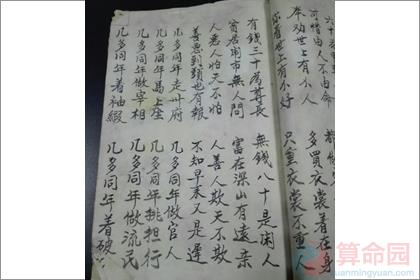 可惜由人不由命
奉劝世上有小人
多買衣裳着在身
只重衣裳不重人
有錢三十為尊長
無錢八十是闲人
貧居闹市無人問
富在深山有遠亲
人恶人怕天不怕
人善人欺天不欺
善恶到頭也有報
不知早來又是遲
几多同年走州府
几多同年做官人
几多同年昌上座
几多同年挑担行
几多同年做宰相
几多同年做流民
几多同年着袖緞
几多同年着破
算命园
suanmingyuan.com